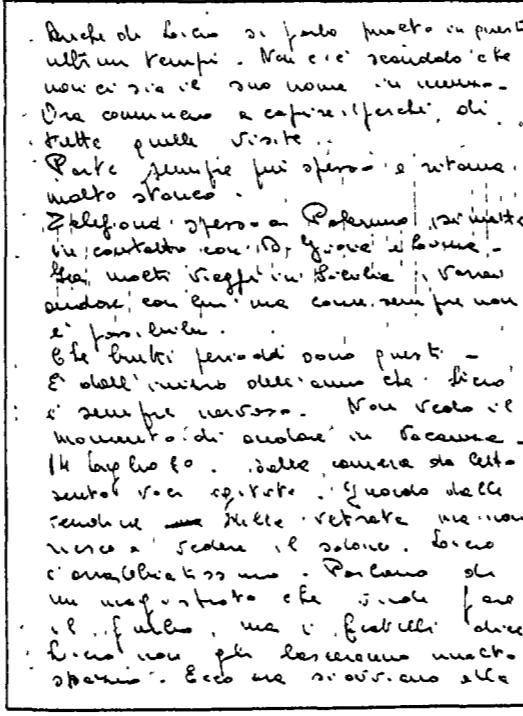 Anche di Licio si parla molto in questi
ultimi tempi. Non c'è scandalo che
non ci sia il suo nome in mezzo.
Ora comincio a capire il perché di
tutte quelle visite.
Parte sempre più spesso e ritorna
molto stanco.
Telefona spesso a Palermo, si mette
in contatto con
Fa molti viaggi in Sicilia, vorrei
andare con lui ma come sempre non
è possibile.
Che brutti periodi sono questi -
È dall'inizio dell'anno che Licio
è sempre nervoso. Non vedo il
momento di andare in vacanza -
14 luglio 80. Dalla camera da letto
sento voci agitate. Guardo dalle
tendine delle vetrate ma non
riesco a vedere il salone. Licio
è arrabbiatissimo. Parlano di
un magistrato che vuole fare
il furbo, ma i fratelli dice
Licio non gli lasceranno molto
spazio. Ecco ora si avviano alla